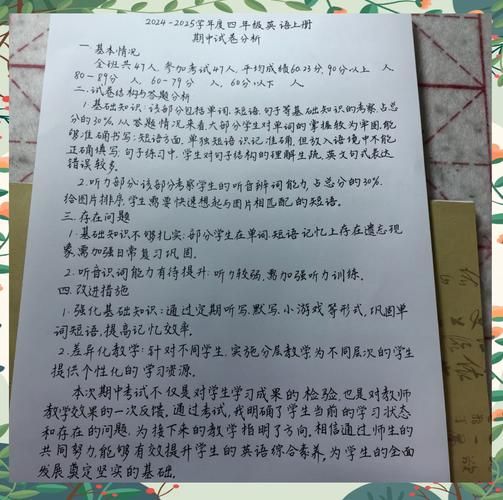 2024-2025学年度四年级英语上册
期中试卷分析
一.基本情况
全班共47人,参加考试47人,平均成绩60.23分,90分以上 人
80-89分 人,60-79分 人,60分以下 人.
二.试卷结构与答题分析
1.基础知识:该部分包括单词、短语、句子等基础知识的考察,占总
分的30%,从答题情况来看,大部分学生对单词的掌握较为牢固,能
够准确书写;短语方面,单独短语识记准确,但放入语境中不能
正确填写;句子练习中,学生对句子结构的理解生疏,英文句式表达
错误较多。
2.听力部分:该部分考察学生的听音辨词能力,占总分的30%.
给图片排序,学生需要快速想起与图片相匹配的短语。
三.存在问题
1.基础知识不够扎实:部分学生在单词、短语记忆上存在遗忘现
象,需加强日常复习巩固。
2.听音识词能力有待提升:听力较弱,需加强听力训练。
四.改进措施
1.强化基础知识:通过定期听写、默写、小游戏等形式,巩固单
词短语,提高记忆效率。
2.差异化教学:针对不同学生,实施分层教学为不同层次的学生
提供个性化的学习资源。
本次期中考试不仅是对学生学习成果的检验,也是对教师
教学效果的一次反馈,通过考试,我明确了学生当前的学习状态
和存在的问题,为接下来的教学指明了方向,相信通过师生的
共同努力,能够有效提升学生的英语综合素养,为学生的全面
发展奠定坚实的基础.